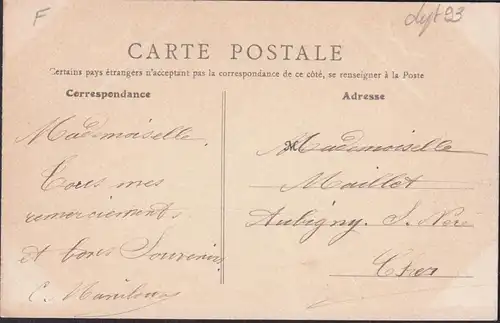 F
dept 93
CARTE POSTALE
Certains pays étrangers n'acceptant pas la correspondance de ce côté, se renseigner à la Poste
Correspondance
Mademoiselle,
Tous mes
remerciements
et bons Souvenirs
Adresse
M
Mademoiselle
Maillet
Aubigny. S. Nère
Cher